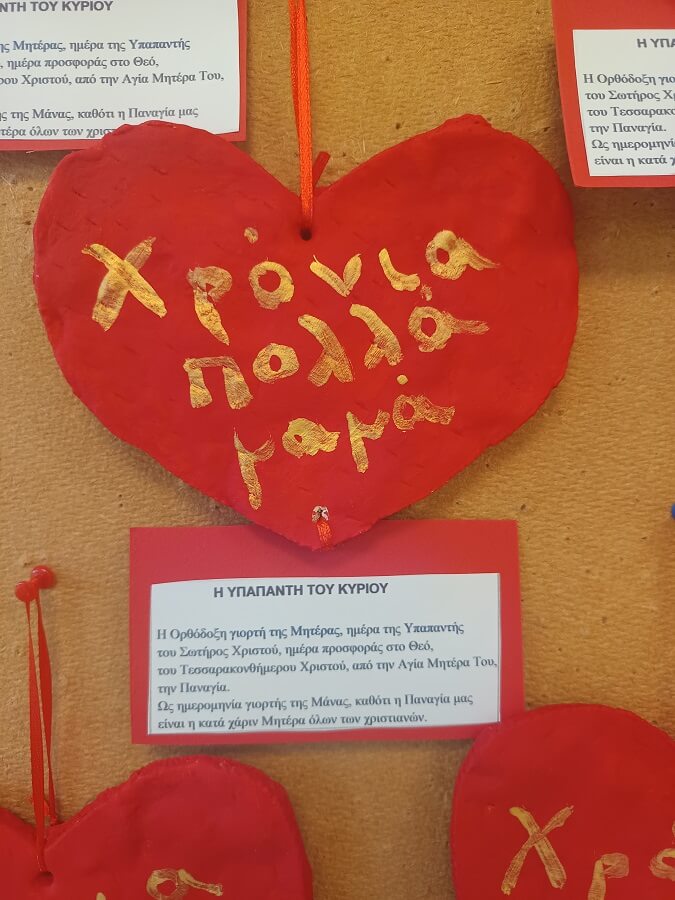 ΝΤΗ ΤΟΥ ΚΥΡΙΟΥ
ης Μητέρας, ημέρα της Υπαπαντής
, ημέρα προσφοράς στο Θεό,
μερου Χριστού, από την Αγία Μητέρα Του,
ς της Μάνας, καθότι η Παναγία μας
τέρα όλων των χριστ
Η ΥΠΑ
Η Ορθόδοξη γιορ
του Σωτήρος Χρ
του Τεσσαρακο
την Παναγία.
Ως ημερομηνία
είναι η κατά χ
Χρόνια
πολλά
μαμά
Η ΥΠΑΠΑΝΤΗ ΤΟΥ ΚΥΡΙΟΥ
Η Ορθόδοξη γιορτή της Μητέρας, ημέρα της Υπαπαντής
του Σωτήρος Χριστού, ημέρα προσφοράς στο Θεό,
του Τεσσαρακονθήμερου Χριστού, από την Αγία Μητέρα Του,
την Παναγία.
Ως ημερομηνία γιορτής της Μάνας, καθότι η Παναγία μας
είναι η κατά χάριν Μητέρα όλων των χριστιανών.
α
Χρ